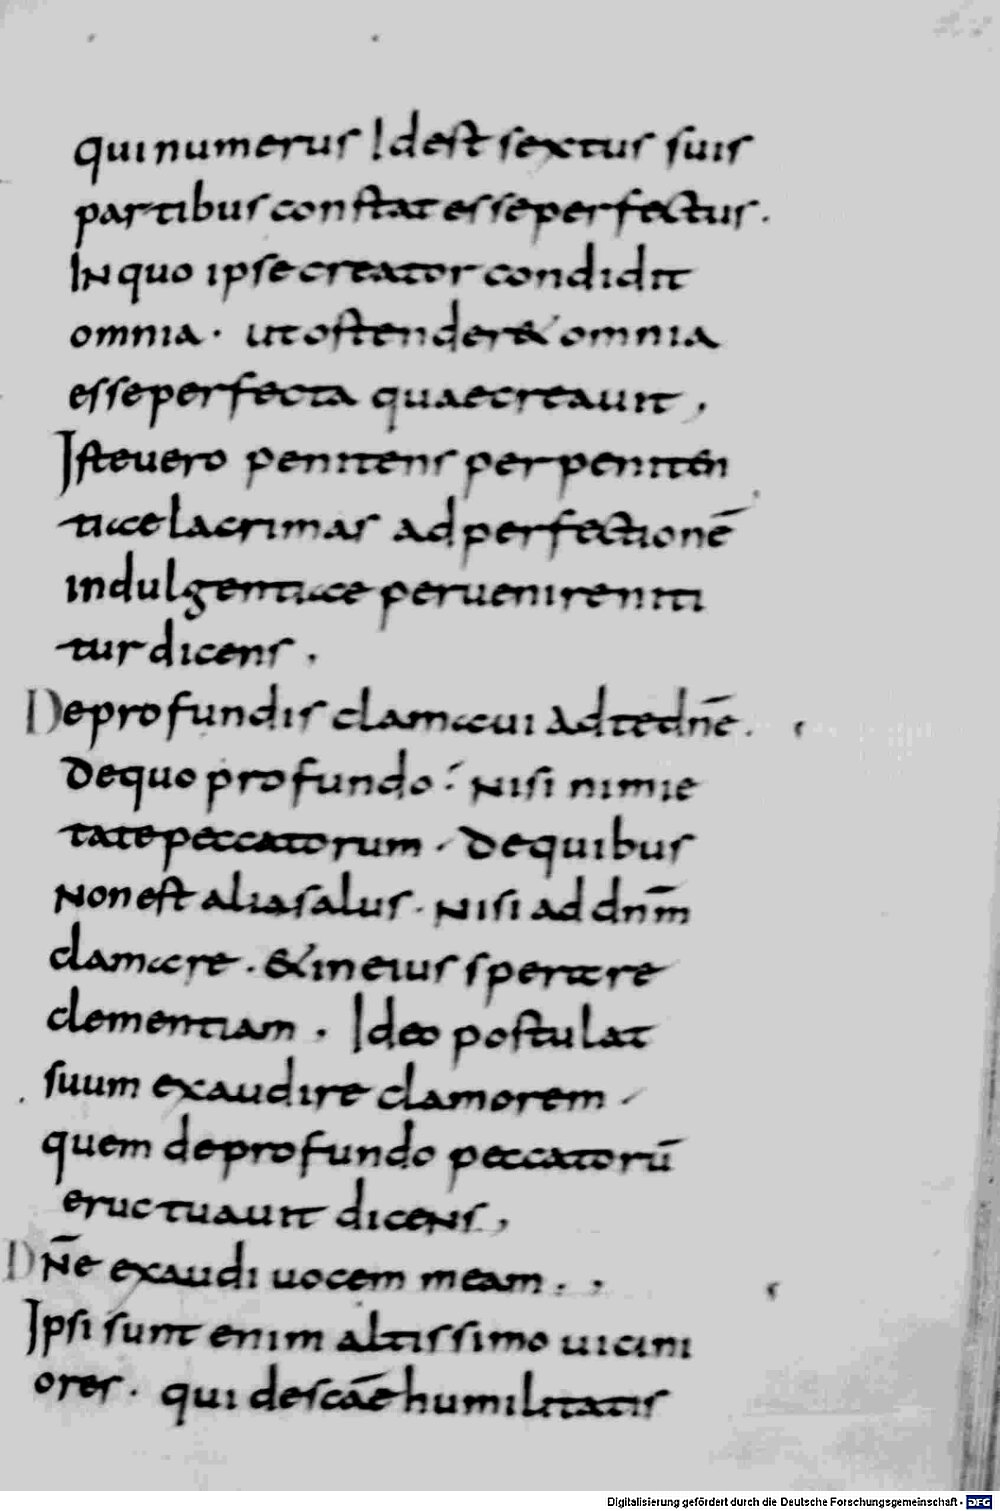 qui numerus Id est sextus suis
partibus constat esse perfectus.
In quo ipse creator condidit
omnia. ut ostender& omnia
esse perfecta quae creauit,
Iste uero penitens per peniten
tiae lacrimas ad perfectionē
indulgentiae peruenire niti
tur dicens,
De profundis clamaui ad te dnē.
De quo profundo? Nisi nimie
tate peccatorum. De quibus
Non est alia salus. Nisi ad dnm̄
clamare. & in eius sperare
clementiam. Ideo postulat
suum exaudire clamorem.
quem de profundo peccatorū
eructuauit dicens,
Dn̄e exaudi uocem meam.,
Ipsi sunt enim altissimo uicini
ores. qui de scāe humilitatis
Digitalisierung gefördert durch die Deutsche Forschungsgemeinschaft - DFG